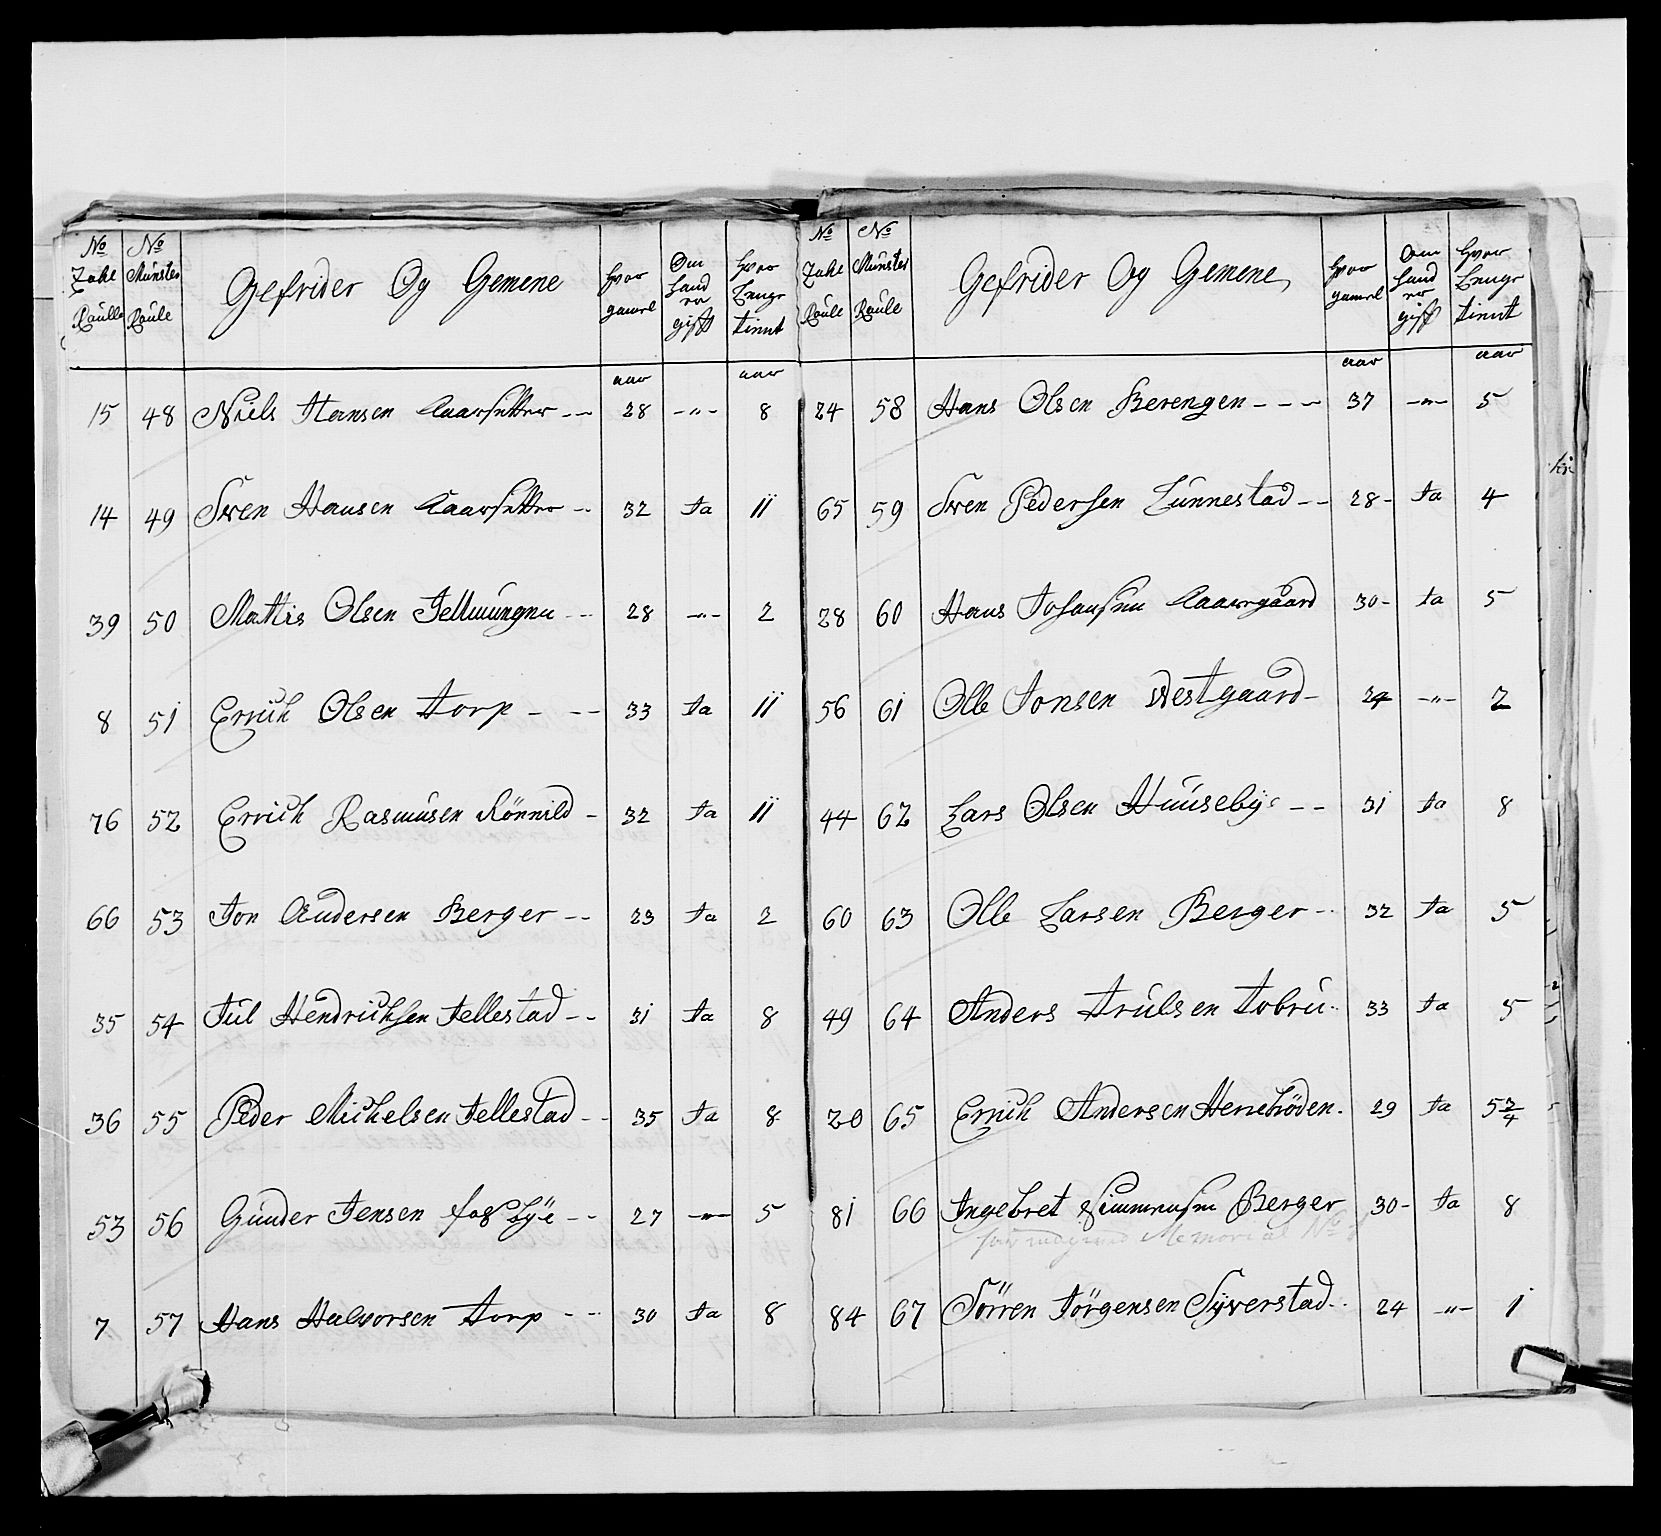 No Zahl Raulle | No Munster Raule | Gefrider Og Gemene | hvor gamel | Om hand er gift | hvor Lenge tient
aar | aar
15 48 Niels Hansen Kaarsetter -- 28 -"- 8
14 49 Sven Hansen Kaarsetter -- 32 Ja 11
39 50 Mattis Olsen -- 28 -"- 2
8 51 Errich Olsen Torp - -- 33 Ja 11
76 52 Errich Rasmusen Rönnild - 32 Ja 11
66 53 Jon Andersen Berger -- 23 Ja 2
35 54 Jul Hendrichsen Jellestad -- 31 Ja 8
36 55 Peder Michelsen Jellestad -- 35 Ja 8
53 56 Gunder Jensen Fosbÿe -- 27 -"- 5
7 57 Hans Halvorsen Torp -- 30 Ja 8
No Zahl Raule | No Munster Raule | Gefrider Og Gemene | hvor gamel | Om hand er gift | hvor Lenge tient
aar | aar
24 58 Hans Olsen Berengen --- 37 -"- 5
65 59 Sven Pedersen Lunnestad -- 28- Ja 4
28 60 Hans Johansen Kaavrgaard 30- Ja 5
56 61 Olle Jonsen Westgaard - 24 -"- 2
44 62 Lars Olsen Huusebÿe -- 31 Ja 8
60 63 Olle Larsen Berger -- 32 Ja 5
49 64 Anders Trulsen Tobru - 33 Ja 5
20 65 Errich Andersen Herrebröden. 29 Ja 5 3/4
81 66 Ingebret Simmensen Berger 30- Ja 8
Memorial No
84 67 Sörren Jörgensen Syverstad -- 24 -"- 1